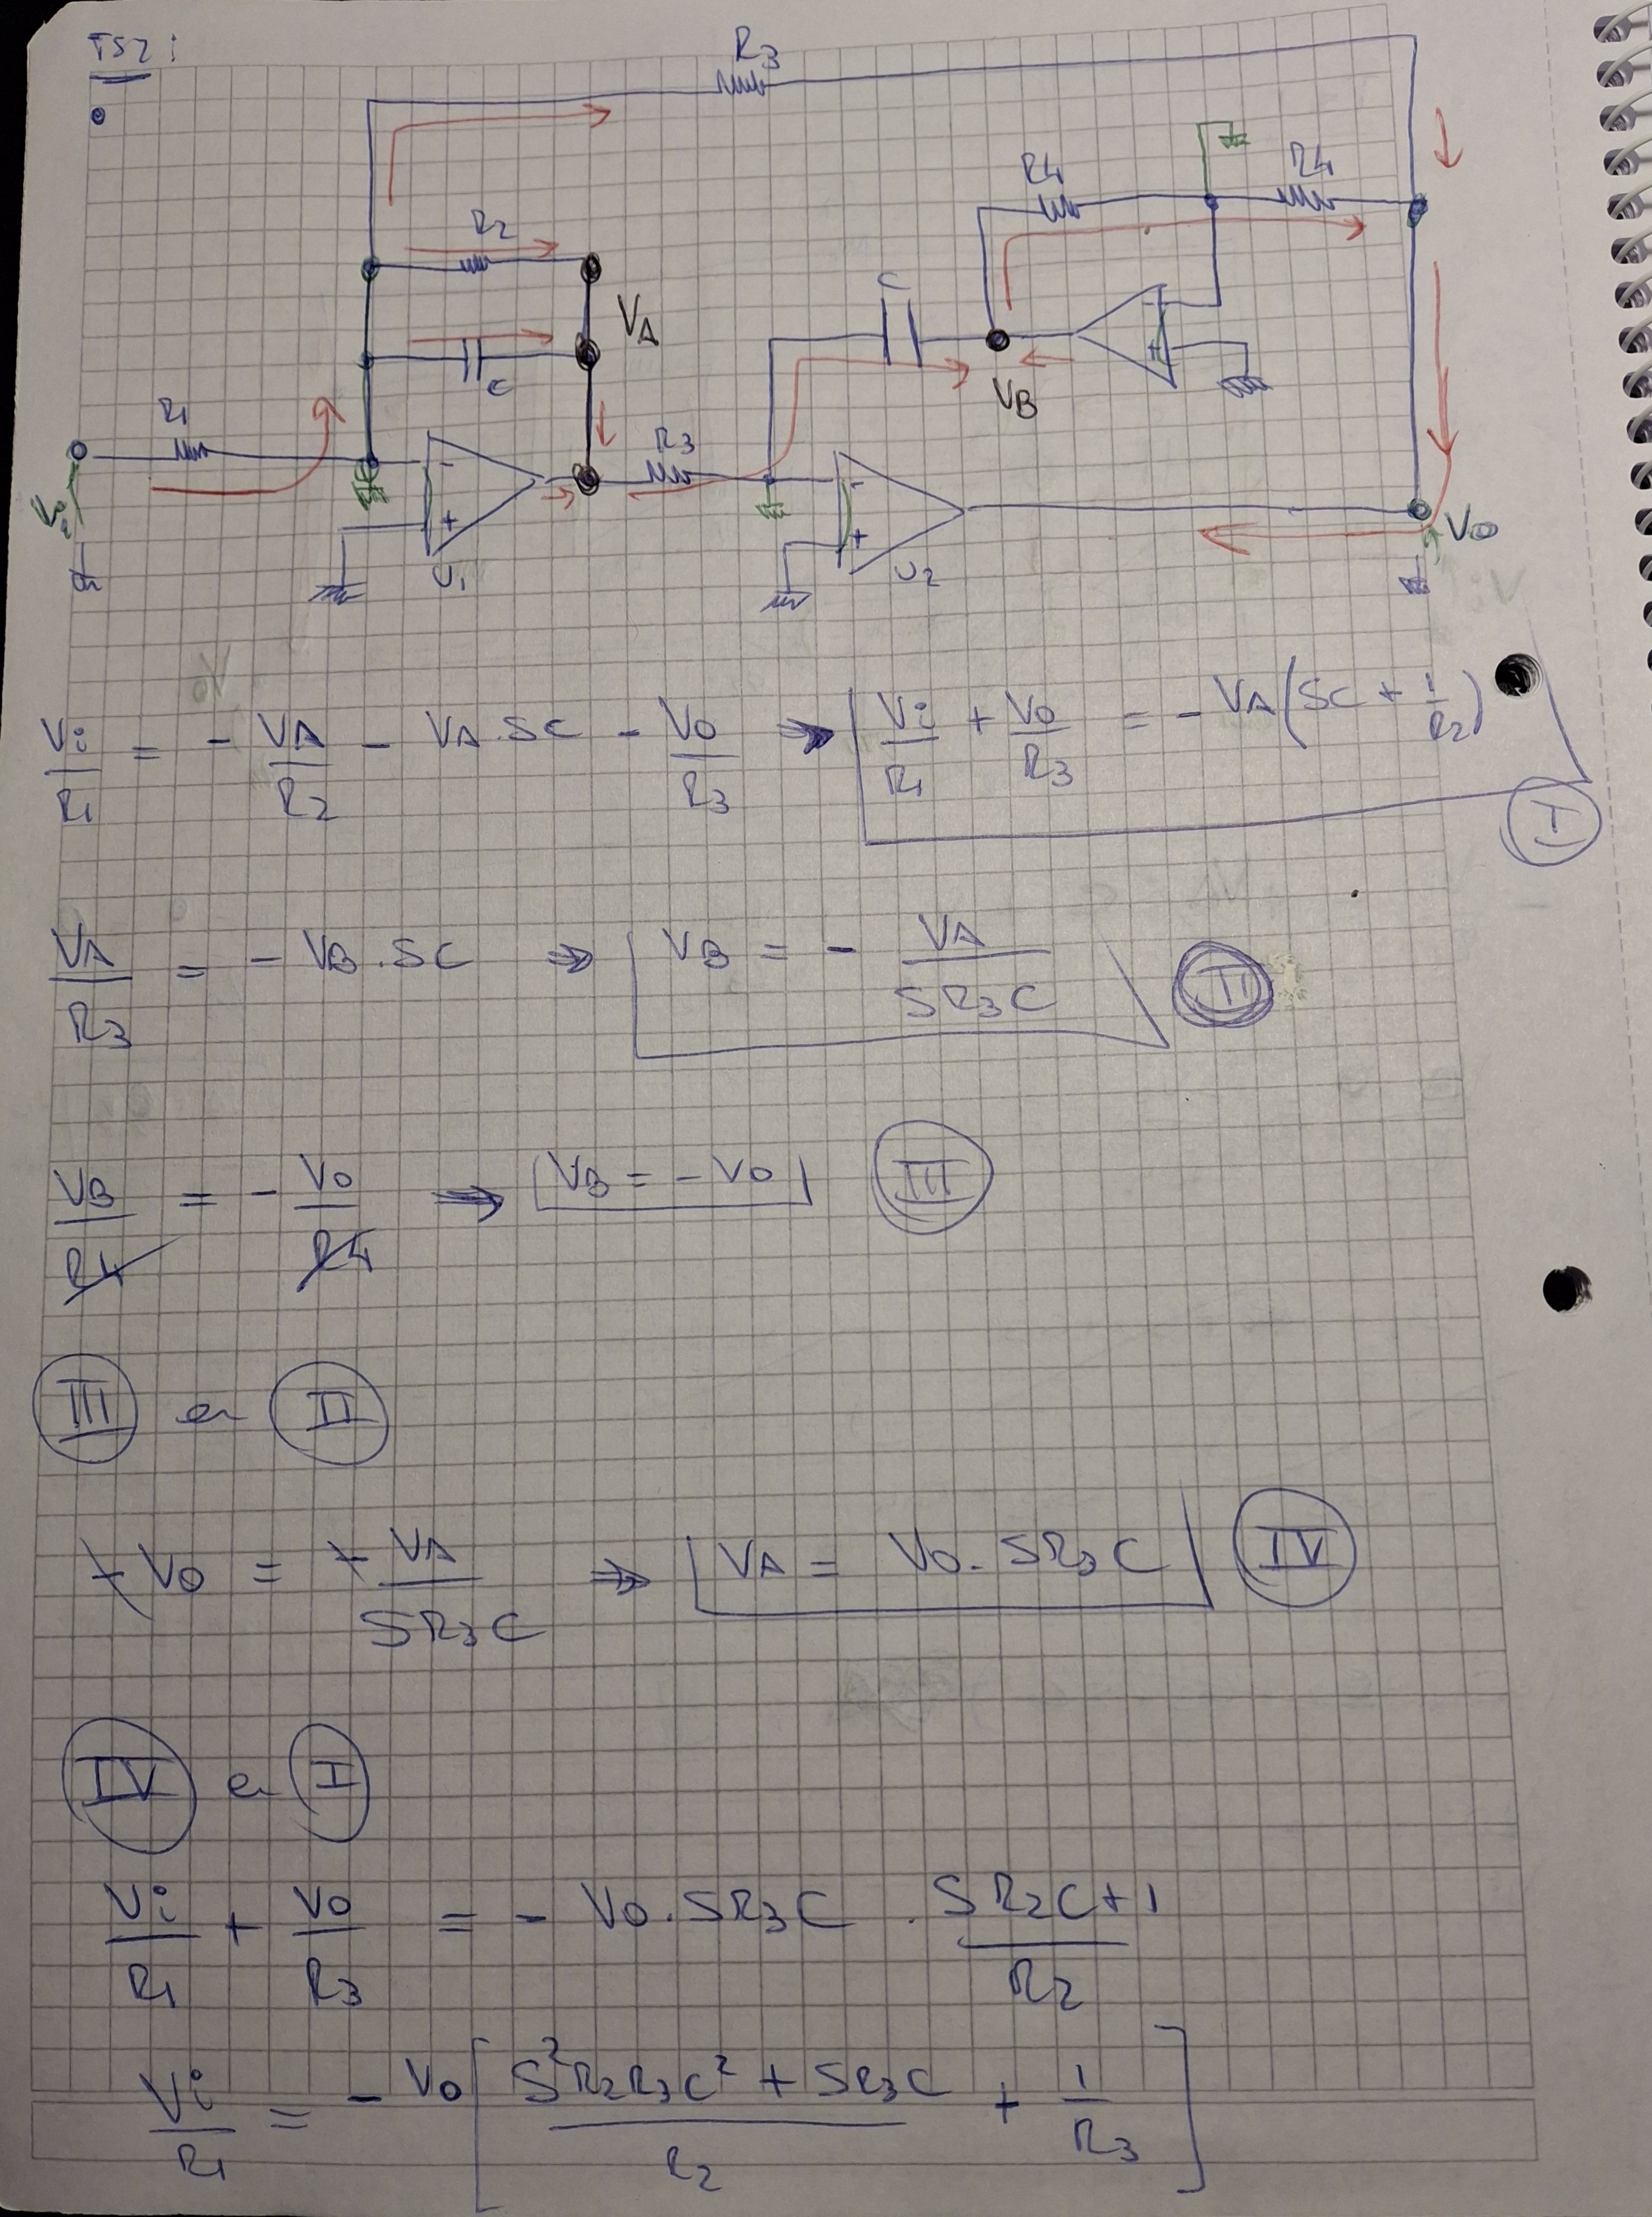 TS2:
R3
R4 R4
R2
C
VA
C
VB
R1
R3
-
+
U1
-
+
U2
-
+
Vi
Vo
Vi/R1 = - VA/R2 - VA.SC - Vo/R3 ⇒ Vi/R1 + Vo/R3 = - VA(SC + 1/R2) I
VA/R3 = - VB.SC ⇒ VB = - VA/SR3C II
VB/R4 = - Vo/R4 ⇒ VB = - Vo III
III en II
- Vo = - VA/SR3C ⇒ VA = Vo.SR3C IV
IV en I
Vi/R1 + Vo/R3 = - Vo.SR3C . SR2C+1/R2
Vi/R1 = - Vo[S²R2R3C² + SR3C/R2 + 1/R3]